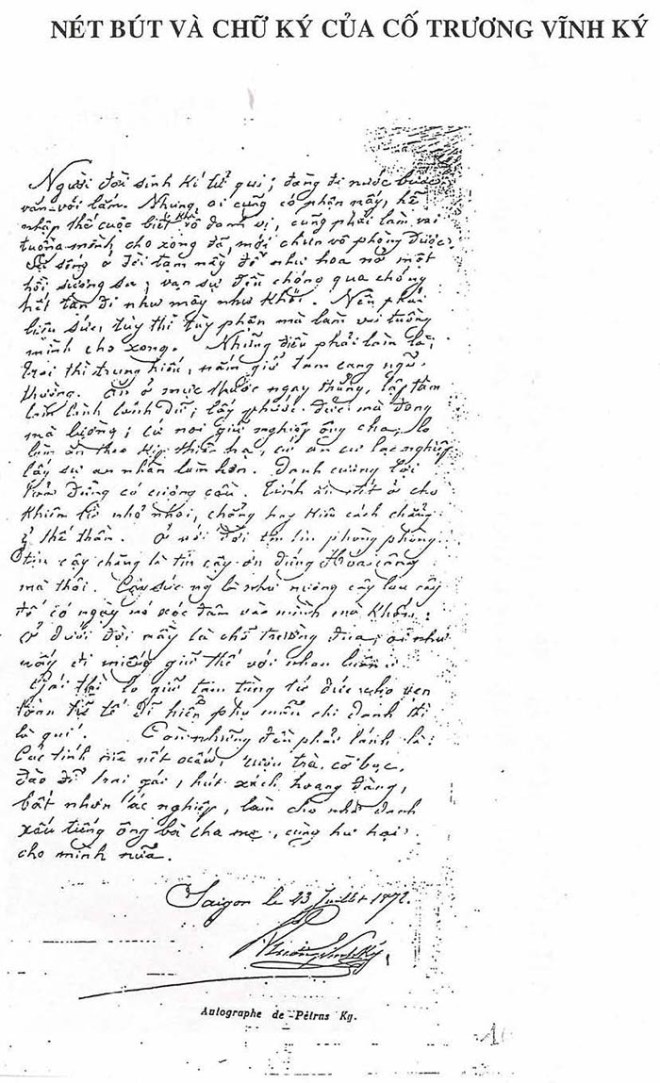 NÉT BÚT VÀ CHỮ KÝ CỦA CỐ TRƯƠNG VĨNH KÝ
Người đời sinh kí tử qui; đàng đi nước bước
vắn-vỏi lắm. Nhưng ai cũng có phận nấy, hễ
nhập thế cuộc bất khả vô danh vị, cũng phải làm vai
tuồng mình cho xong đã mới chun vô phòng được.
Sự sống ở đời tạm nầy đỗ như hoa nở một
hồi sương sa; vạn sự đều chóng qua chóng
hết tan đi như mây như khói. Nên phải
liệu sức, tùy thì tùy phận mà làm vai tuồng
mình cho xong. Những điều phải làm là,
trai thì trung hiếu, nắm giữ tam cang ngũ
thường. Ăn ở mực thước ngay thẳng, lấy tâm
làm lành lánh dữ; lấy phước đức mà đong
mà lường; cứ noi giữ nghiệp ông cha, lo
làm ăn theo kịp thiên hạ, cứ an cư lạc nghiệp
lấy sự an nhàn làm hơn. Danh cương lợi
tỏa đừng có cượng cầu. Tính ăn nết ở cho
khiêm nhỏ nhoi, chẳng hay hiềm cách chẳng
ỷ thế thần. Ở với đời
tin cậy chăng là tin cậy ơn đấng Hóa công
mà thôi. Cậy sức ng là như nương cây lau cây
có ngày nó xóc đâm vào mình mà khốn.
Ở dưới đời nầy là chỗ trường đua, ai như
nấy đi miếng giữ thế với nhau luôn.
Gái thì lo giữ tam tùng tứ đức cho vẹn
toàn dĩ hiển phụ mẫu chi danh thì
là quí. Còn những đều phải lánh là:
Các tính mê nết xấu, rượu trà, cờ bạc,
đào đĩ trai gái, hút xách hoang đàng,
bất nhơn ác nghiệp, làm cho nhơ danh
xấu tiếng ông bà cha mẹ, cùng hư hại
cho mình nữa.
Saigon le 23 Juillet 1872.
Trương Vĩnh Ký
Autographe de Pétrus Ky.